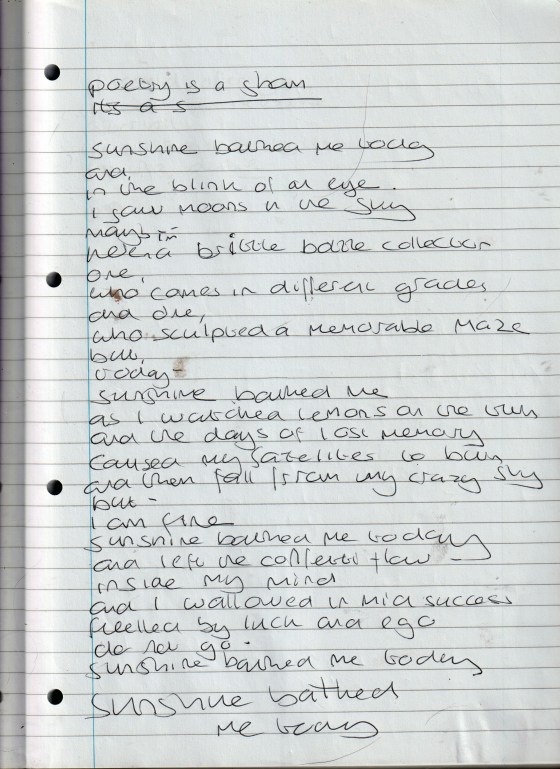 poetry is a sham
its a s
sunshine bathed me today
and,
in the blink of an eye.
I saw moons in the sky
maybe i'm
here a brittle bottle collector
one,
who comes in different grades
and one,
who sculpted a memorable maze
but,
today -
sunshine bathed me
as I watched lemons on the turn
and the days of lost memory
caused my satelites to burn
and then fall from my crazy sky
but -
I am fine
sunshine bathed me today
and left the confetti flow
inside my mind
and I wallowed in mid success
fuelled by luck and ego
do na go.
sunshine bathed me today
sunshine bathed
me today